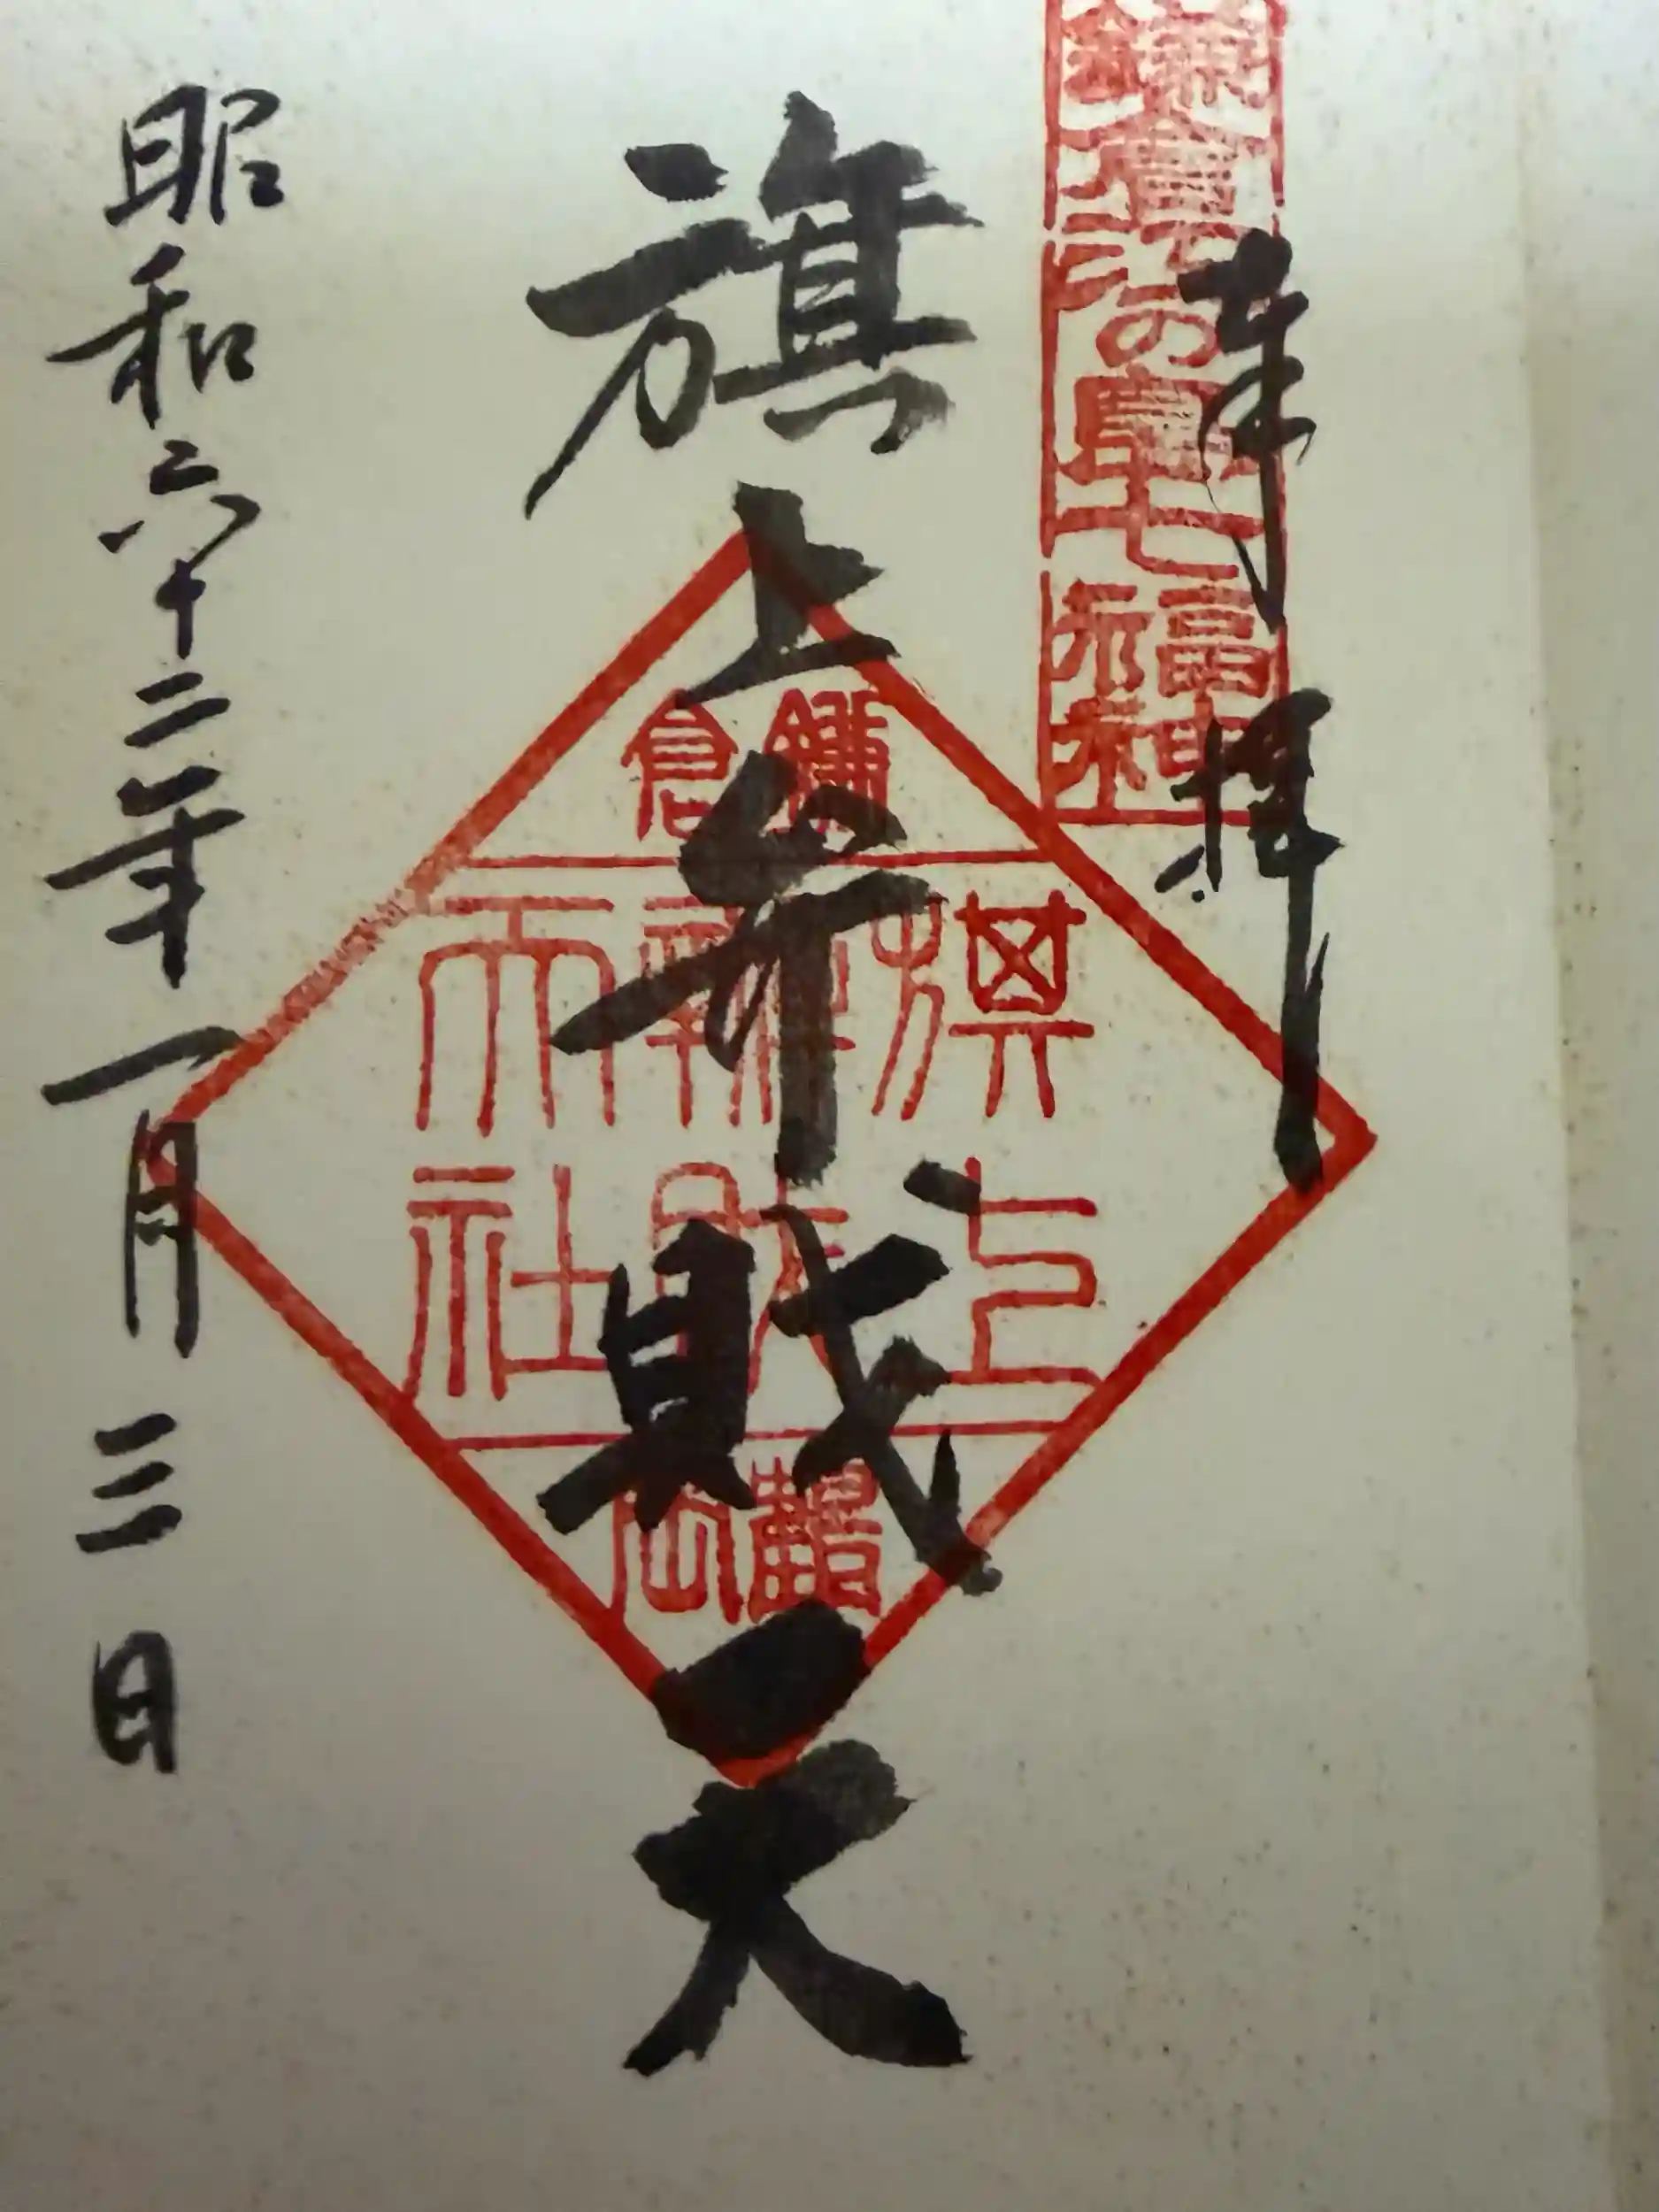 奉拝
鎌倉江の島七福神
旗上弁財天
鎌倉
旗上
辨財
天社
鶴岡
昭和六十二年一月三日